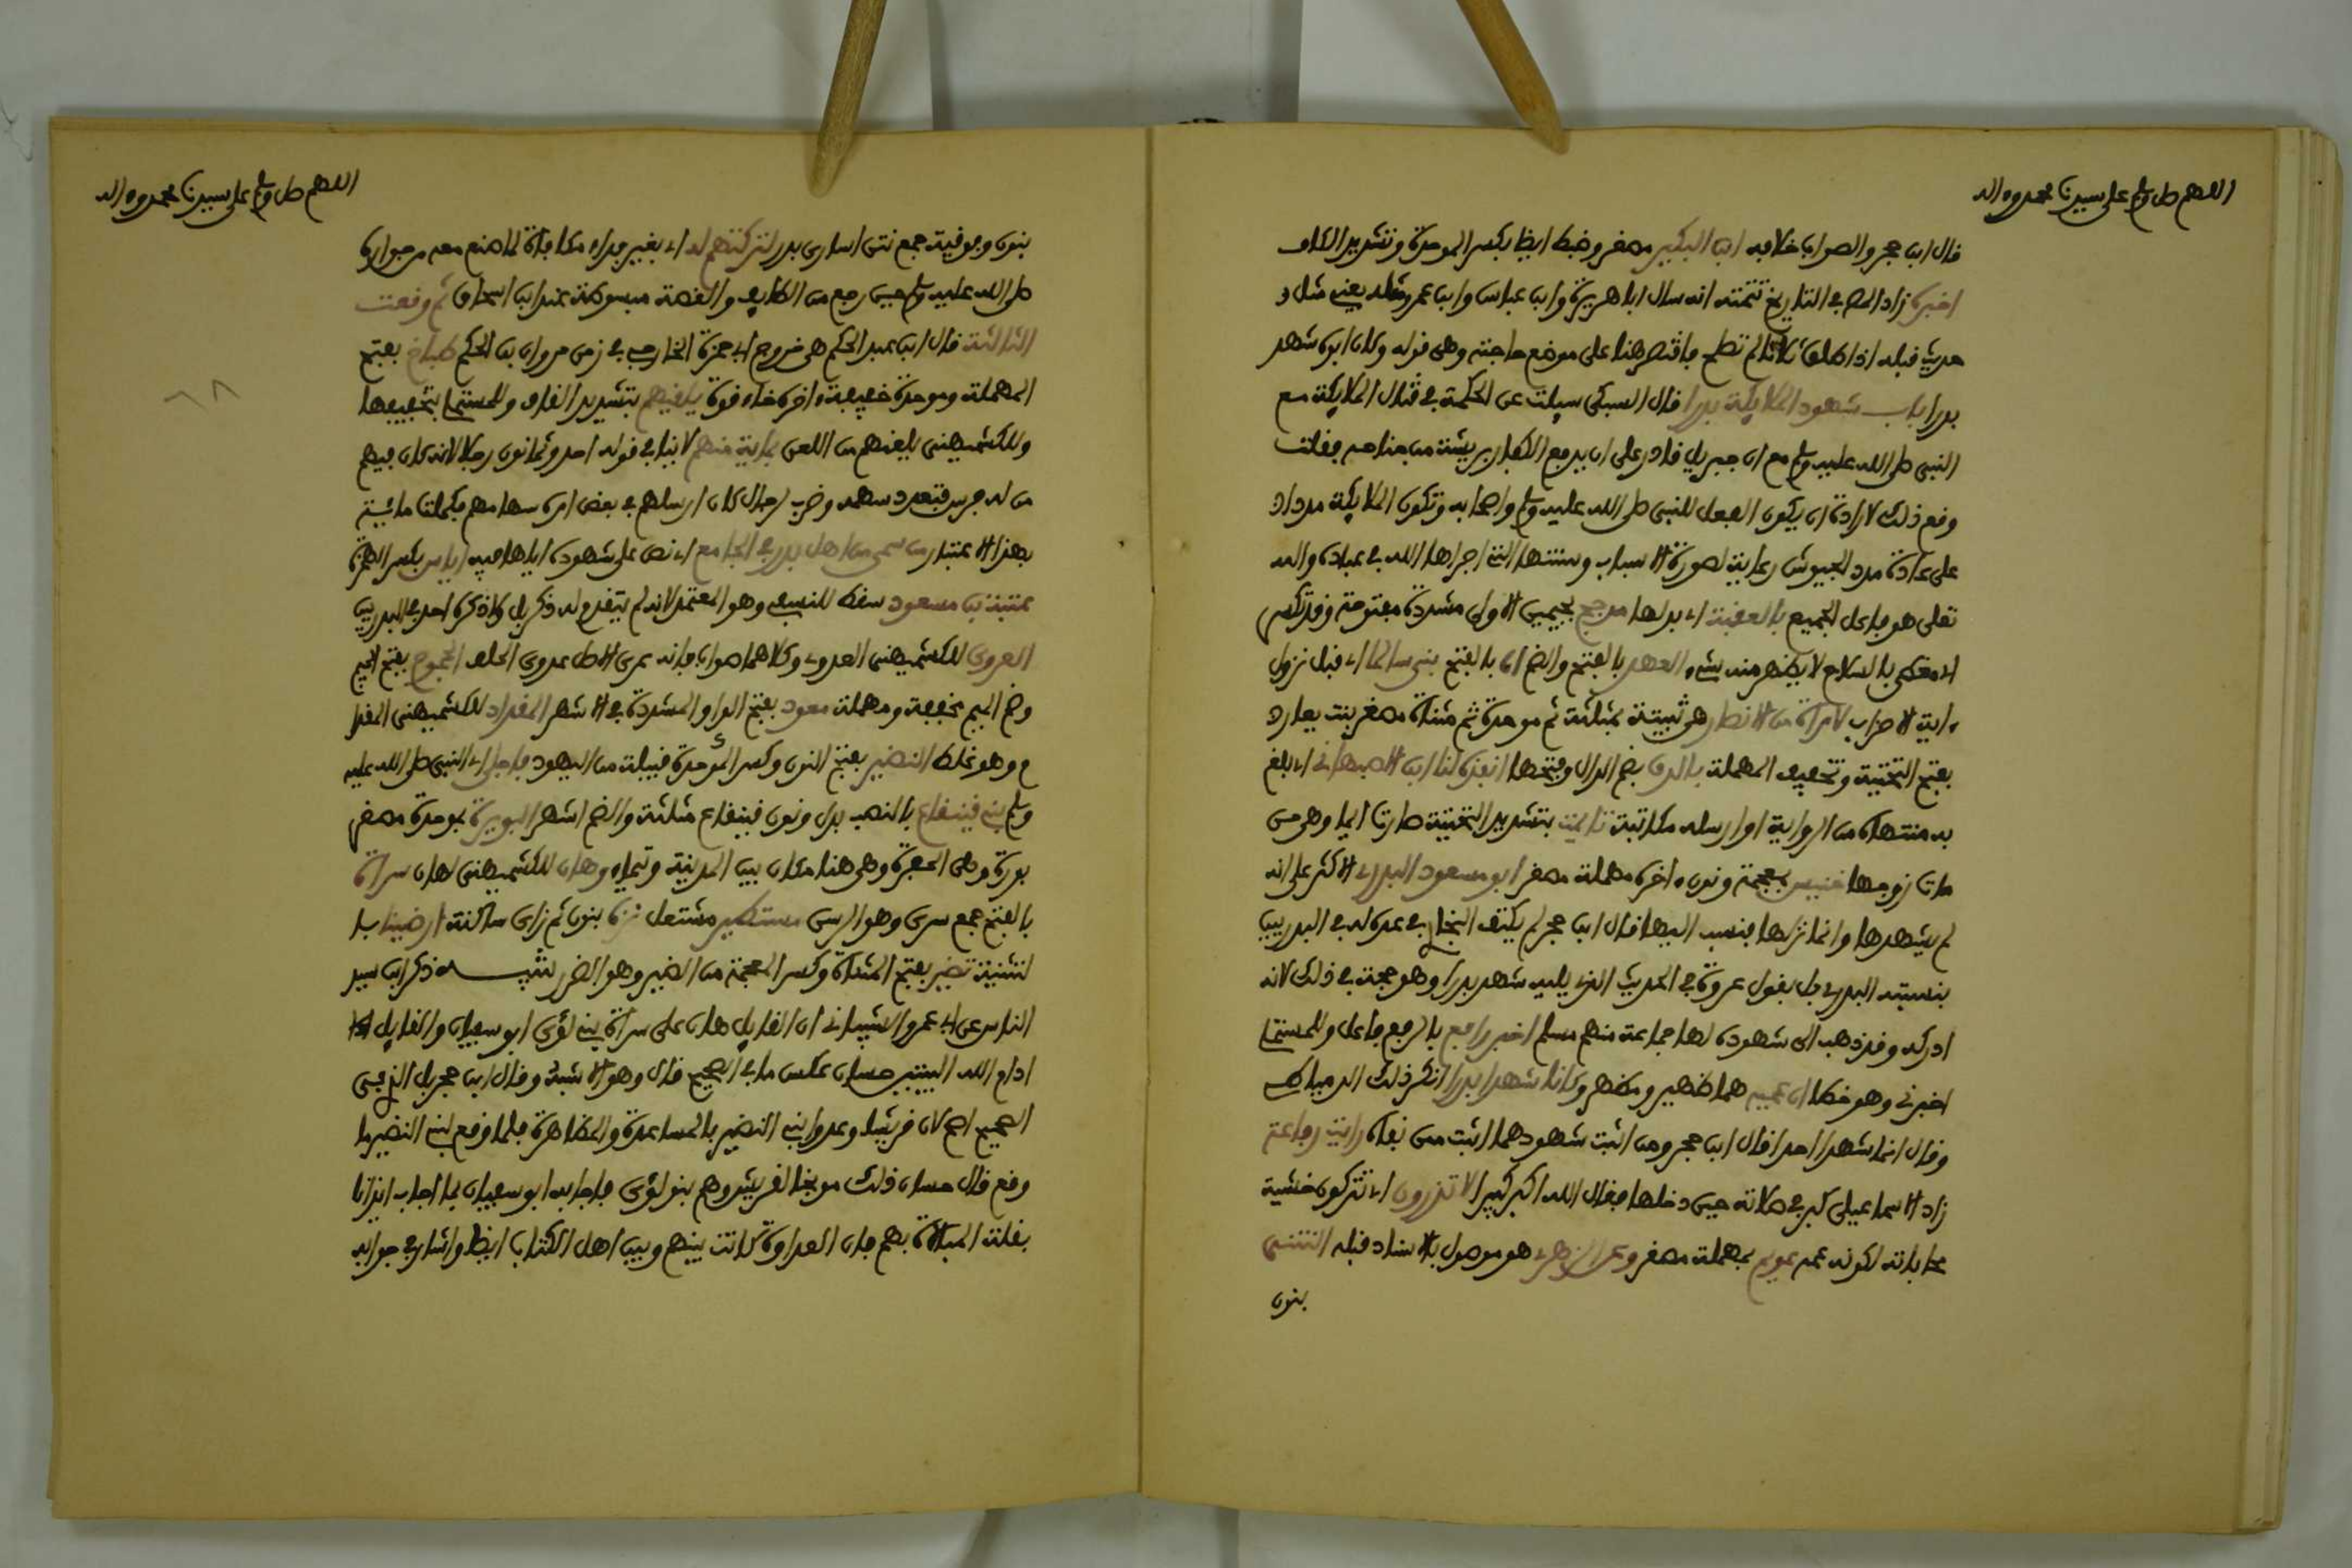 اللهم صل وسلم على سيدنا محمد وءاله
قال ابن حجر والصواب خلافه ابن البكير مصغر وضبط ايضا بكسر الموحدة وتشديد الكاف
اخبره زاد المص في التاريخ تتمته انه سال ابا هريرة وابن عباس وابن عمر مثله يعني مثل
حديث قبله اذا طلق ثلاثا لم تصلح فاقتصر هنا على موضع حاجته وهي قوله وكان ابوه شهد
بدرا باب شهود الملايكة بدرا قال السبكي سيلت عن الحكمة في قتال الملايكة مع
النبي صلى الله عليه وسلم مع ان جبريل قادر على ان يدفع الكفار بريشة من جناحه فقلت
وقع ذلك لارادة ان يكون الفعل للنبي صلى الله عليه وسلم واصحابه وتكون الملايكة مددا
على عادة مدد الجيوش رعاية لصورة الاسباب وسنتها التي اجراها الله في عباده والله
تعلى هو فاعل الجميع بالعقبة اي بدلها مدجج بجيمين الاولى مشددة مفتوحة وقد تكسر
اي مغطى بالسلاح لا يظهر منه شيء العهد بالفتح والضم اباه بالفتح بني سالما اي قبل نزول
ءاية الاحزاب لامراة من الانصار هي ثبيتة بمثلثة ثم موحدة ثم مثناة مصغر بنت يعار
بفتح التحتية وتخفيف المهملة بالدف بضم الدال وفتحها انفذه لنا ابن الاصبهاني اي بلغ
به منتهاه من الرواية او ارسله مكاتبة تايمت بتشديد التحتية صارت ايما وهي من
مات زوجها خنيس بمعجمة ونون ءاخره مهملة مصغر ابو مسعود البدري الاكثر على انه
لم يشهدها وانما نزلها فنسب اليها قال ابن حجر لم يكتف البخاري في عده له في البدريين
بنسبته البدري بل بقول عروة في الحديث الذي يليه شهد بدرا وهو حجة في ذلك لانه
ادركه وقد ذهب الى شهوده لها جماعة منهم مسلم اخبر رافع بالرفع فاعل وللمستملي
اخبرني وهو خطا ان عميه هما ظهير ومظهر وكانا شهدا بدرا انكر ذلك الدمياطي
وقال انما شهدا احدا قال ابن حجر ومن اثبت شهودهما اثبت ممن نفاه رايت رفاعة
زاد الاسماعيلي كبر في صلاته حين دخلها فقال الله اكبر كبيرا لا تذرون اي تتركون خشية
محاباته لكونه عمه عويم بمهملة مصغر وعن الزهري هو موصول بالاسناد قبله النتنى
بنون
اللهم صل وسلم على سيدنا محمد وءاله
بنون وفوقية جمع نتن اسارى بدر لتركتهم له اي بغير فداء مكافاة لما صنع معه من جواره
صلى الله عليه وسلم حين رجع من الطايف والقصة مبسوطة عند ابن اسحاق ثم وقعت
الثالثة قال ابن عبد الحكم هي خروج ابي حمزة الخارجي في زمن مروان بن الحكم طباخ بفتح
المهملة وموحدة خفيفة ءاخره خاء فوق يلقيهم بتشديد القاف وللمستملي بتخفيفها
وللكشميهني يلعنهم من اللعن بماية منهم لا ينافي قوله احد وثمانون رجلا لانه كان فيهم
من له فرس فتعدد سهمه وضرب لرجال كان ارسلهم في بعض امره سهامهم فكملت ماية
بهذا الاعتبار من سمي من اهل بدر في الجامع اي نص على شهوده اياها فيه اياس بكسر الهمزة
عتبة بن مسعود سقط للنسفي وهو المعتمد لانه لم يتقدم له ذكر بل ولا ذكره احد في البدريين
العروى للكشميهني العدوي وكلاهما صواب فانه عمرى الاصل عدوى الحلف الجموح بفتح الجيم
وضم الميم مخففة ومهملة معوذ بفتح الواو المشددة في الاشهر المقداد للكشميهني المقدا
م وهو غلط النضير بفتح النون وكسر الموحدة قبيلة من اليهود فاجلى اي النبي صلى الله عليه
وسلم بني قينقاع بالنصب بدل ونون قينقاع مثلثة والضم اشهر البويرة بموحدة مصغر
بورة وهي الحفرة وهي هنا مكان بين المدينة وتيماء وهان للكشميهني لهان سراة
بالفتح جمع سرى وهو الريس مستطير مشتعل نزه بنون ثم زاى ساكنة ارضينا با
لتثنية تضير بفتح المثناة وكسر المعجمة من الضير وهو الضرر تنبيه ذكر ابن سيد
الناس عن ابي عمرو الشيباني ان القايل هان على سراة بني لؤى ابو سفيان والقايل
ادام الله البيتين حسان عكس ما في الصحيح قال وهو الاشبه وقال ابن حجر بل الذي في
الصحيح اصح لان قريشا وعدوا بني النضير بالمساعدة والمظاهرة فلما وقع لبني النضير ما
وقع قال حسان ذلك موبخا لقريش وهم بنو لؤى فاجابه ابو سفيان بما اجاب ايذانا
بقلة المبالاة بهم فان العداوة كانت بينهم وبين اهل الكتاب ايضا واشار في جوابه